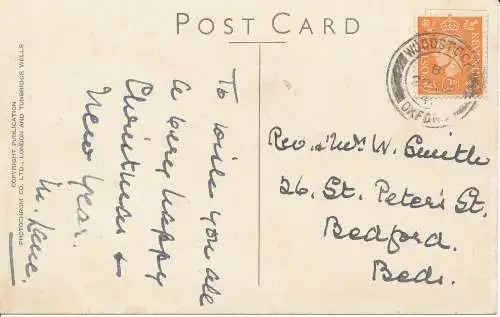 POST CARD
COPYRIGHT PUBLICATION
PHOTOCHROM CO. LTD., LONDON AND TUNBRIDGE WELLS
To wish you all
a very happy
Christmas &
New Year.
REVENUE
WOODSTOCK
OXFORD
Rev. & Mrs W. Smith
26. St. Peter's St.
Bedford.
Beds.